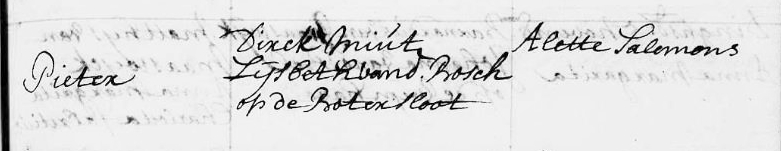 Pieter
Dirck Miút
Lijsbeth vand Bosch
op de Botersloot
Alette Salomons